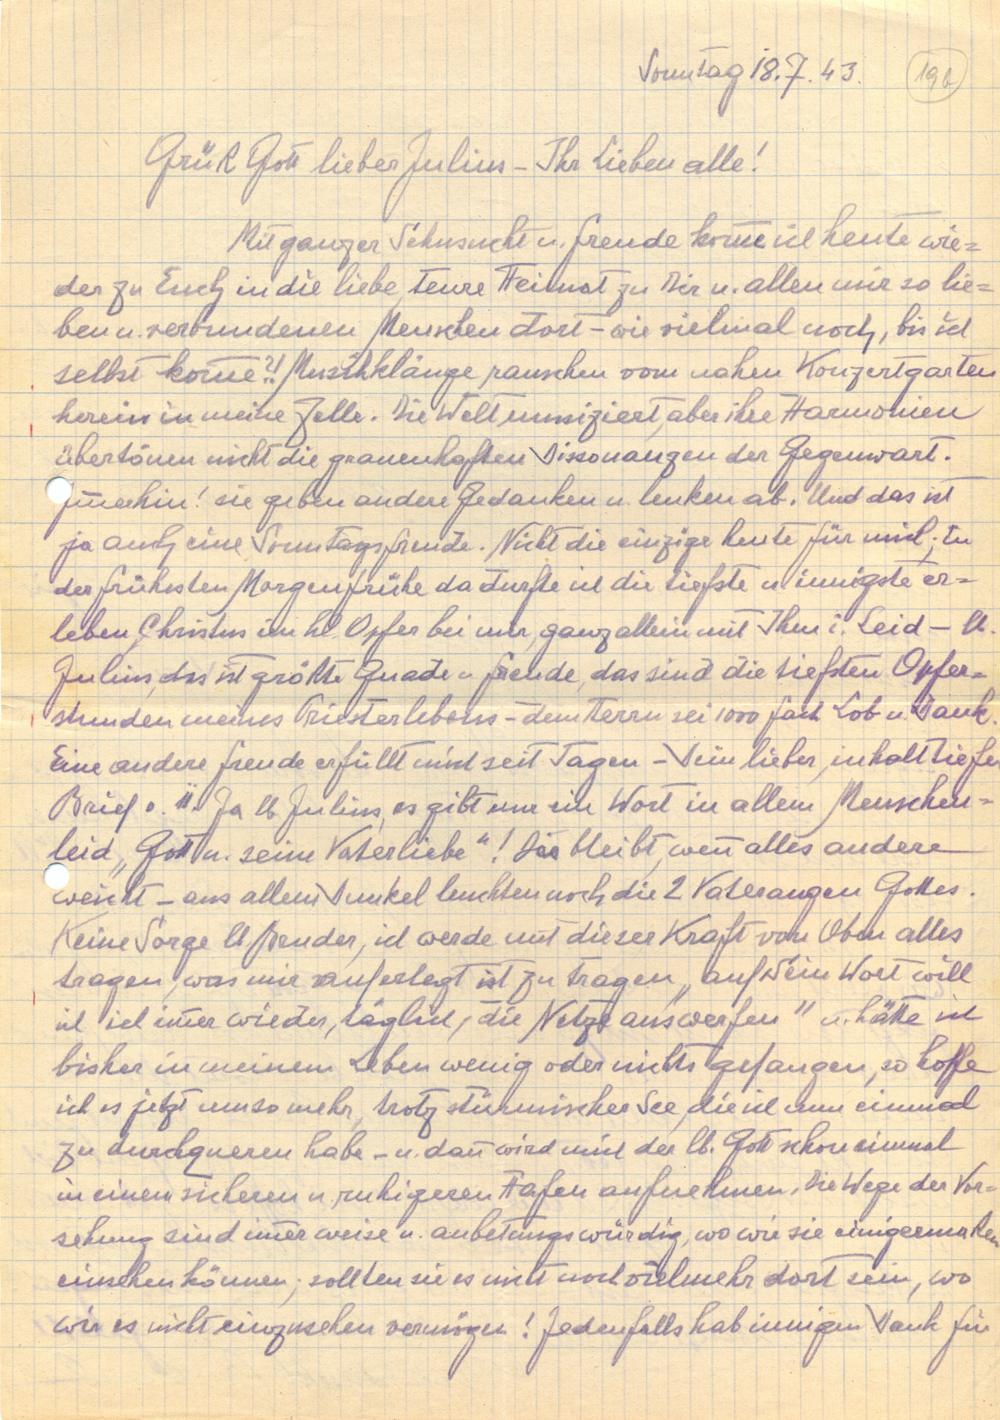 Sonntag 18.7.43.
19b
Grüß Gott lieber Julius – Ihr Lieben alle!
Mit ganzer Sehnsucht u. Freude kom̅e ich heute wie=
der zu Euch in die liebe, teure Heimat zu Dir u. allen mir so lie=
ben u. verbundenen Menschen dort – wie vielmal noch, bis ich
selbst kom̅e?! Musikklänge rauschen vom nahen Konzertgarten
herein in meine Zelle. Die Welt musiziert, aber ihre Harmonien
übertönen nicht die grauenhaften Dissonanzen der Gegenwart.
Im̅erhin! sie geben andere Gedanken u. lenken ab. Und das ist
ja auch eine Sonntagsfreude. Nicht die einzige heute für mich; in
der frühesten Morgenfrühe da durfte ich die tiefste u. innigste er=
leben, Christus im hl. Opfer bei mir, ganz allein mit Ihm i. Leid – lb.
Julius, das ist größte Gnade u. Freude, das sind die tiefsten Opfer=
stunden meines Priesterlebens – dem Herrn sei 1000 fach Lob u. Dank.
Eine andere Freude erfüllt mich seit Tagen – Dein lieber, inhaltstiefer
Brief v. 11. Ja lb. Julius, es gibt nur ein Wort in allem Menschen=
leid „Gott u. seine Vaterliebe“! Die bleibt, wen̅ alles andere
weicht – aus allem Dunkel leuchten noch die 2 Vateraugen Gottes.
Keine Sorge lb. Bruder, ich werde mit dieser Kraft von Oben alles
tragen, was mir auferlegt ist zu tragen, „auf Dein Wort will
ich ich im̅er wieder, täglich, die Netze auswerfen“ u. hätte ich
bisher in meinem Leben wenig oder nichts gefangen, so hoffe
ich es jetzt umso mehr, trotz stürmischer See, die ich nun einmal
zu durchqueren habe – u. dan̅ wird mich der lb. Gott schon einmal
in einem sicheren u. ruhigeren Hafen aufnehmen. Die Wege der Vor=
sehung sind im̅er weise u. anbetungswürdig, wo wir sie einigermaßen
einsehen können; sollten sie es nicht noch vielmehr dort sein, wo
wir es nicht einzusehen vermögen! Jedenfalls hab innigen Dank für